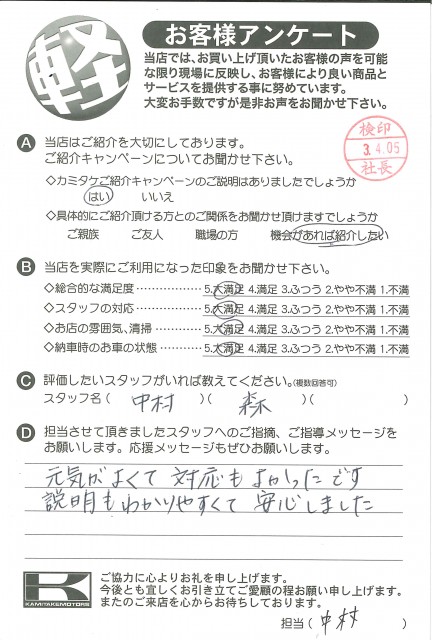 軽
お客様アンケート
当店では、お買い上げ頂いたお客様の声を可能
な限り現場に反映し、お客様により良い商品と
サービスを提供する事に努めています。
大変お手数ですが是非お声をお聞かせ下さい。
検印
3.4.05
社長
A 当店はご紹介を大切にしております。
ご紹介キャンペーンについてお聞かせ下さい。
◇カミタケご紹介キャンペーンのご説明はありましたでしょうか
はい いいえ
◇具体的にご紹介頂ける方とのご関係をお聞かせ頂けますでしょうか
ご親族 ご友人 職場の方 機会があれば紹介したい
B 当店を実際にご利用になった印象をお聞かせ下さい。
◇総合的な満足度………………5.大満足 4.満足 3.ふつう 2.やや不満 1.不満
◇スタッフの対応………………5.大満足 4.満足 3.ふつう 2.やや不満 1.不満
◇お店の雰囲気、清掃…………5.大満足 4.満足 3.ふつう 2.やや不満 1.不満
◇納車時のお車の状態…………5.大満足 4.満足 3.ふつう 2.やや不満 1.不満
C 評価したいスタッフがいれば教えてください。(複数回答可)
スタッフ名( 中村 )( 森 )( )
D 担当させて頂きましたスタッフへのご指摘、ご指導メッセージを
お願いします。応援メッセージもぜひお願いします。
元気がよくて 対応もよかったです
説明もわかりやすくて 安心しました
K
KAMITAKEMOTORS
ご協力に心よりお礼を申し上げます。
今後とも宜しくお引き立てご愛顧の程お願い申し上げます。
またのご来店を心からお待ちしております。
担当( 中村 )